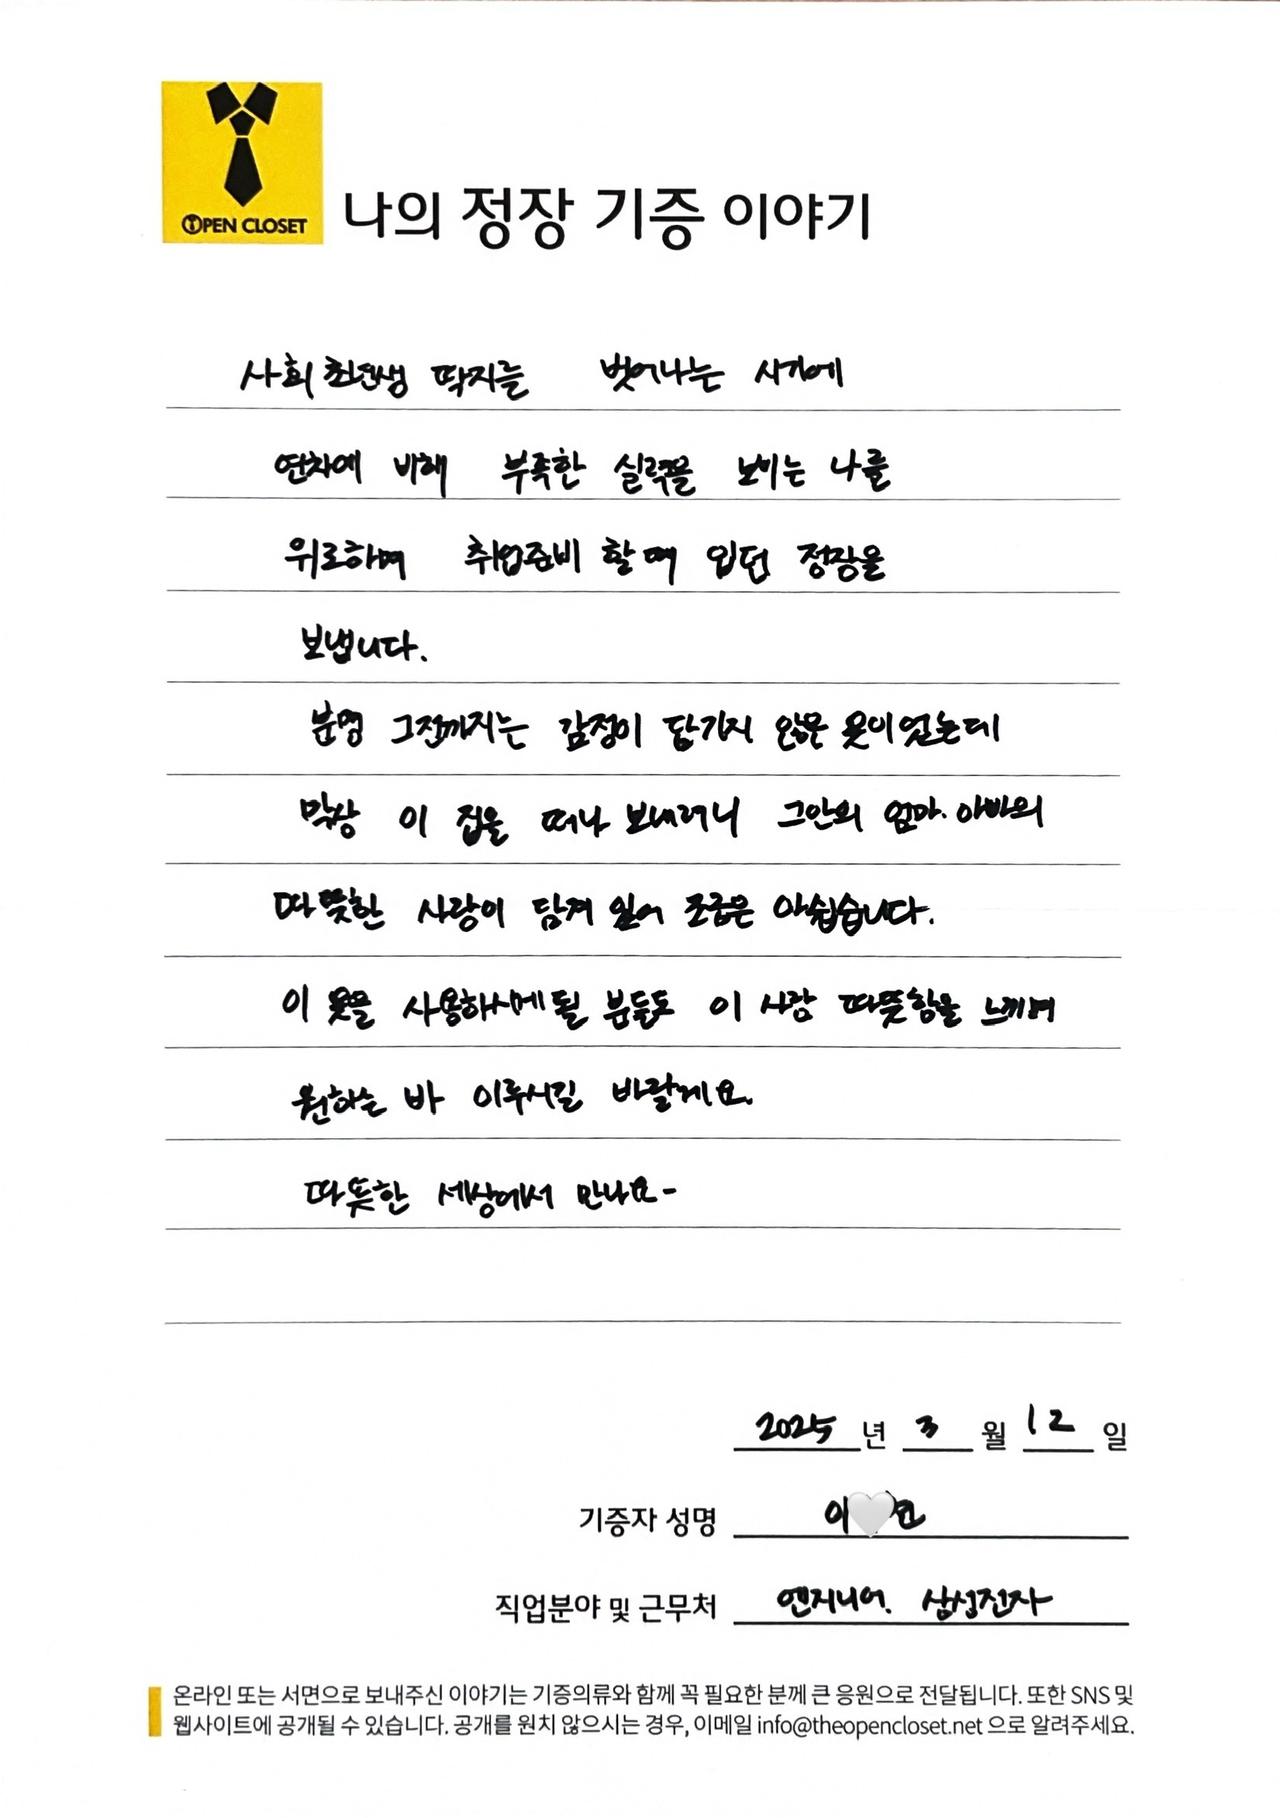 OPEN CLOSET
나의 정장 기증 이야기
사회 초년생 딱지를 벗어나는 시기에
연차에 비해 부족한 실력을 보이는 나를
위로하며 취업준비 할 때 입던 정장을
보냅니다.
분명 그전까지는 감정이 담기지 않은 옷이었는데
막상 이 집을 떠나 보내려니 그안의 엄마·아빠의
따뜻한 사랑이 담겨 있어 조금은 아쉽습니다.
이 옷을 사용하시게 될 분들도 이 사랑 따뜻함을 느끼며
원하는 바 이루시길 바랄게요.
따뜻한 세상에서 만나요-
2025 년 3 월 12 일
기증자 성명 이
직업분야 및 근무처 엔지니어. 삼성전자
온라인 또는 서면으로 보내주신 이야기는 기증의류와 함께 꼭 필요한 분께 큰 응원으로 전달됩니다. 또한 SNS 및
웹사이트에 공개될 수 있습니다. 공개를 원치 않으시는 경우, 이메일 info@theopencloset.net 으로 알려주세요.